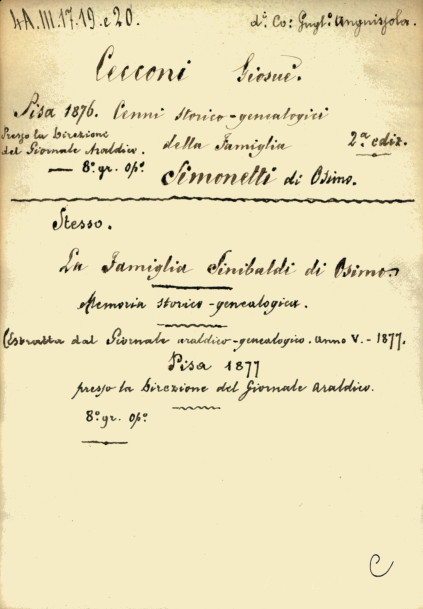 4A.III.17.19.e 20. d.i Co: Gugl.o Anguissola.
Cecconi Giosuè.
Pisa 1876. Cenni storico-genealogici
Presso la Direzione
del Giornale Araldico. della Famiglia 2.a ediz.
8.o gr. op.o Simonetti di Osimo.
Stesso.
La Famiglia Sinibaldi di Osimo.
Memoria storico-genealogica.
(Estratta dal Giornale araldico-genealogico. anno V. - 1877.
Pisa 1877
presso la Direzione del Giornale Araldico.
8.o gr. op.o
C